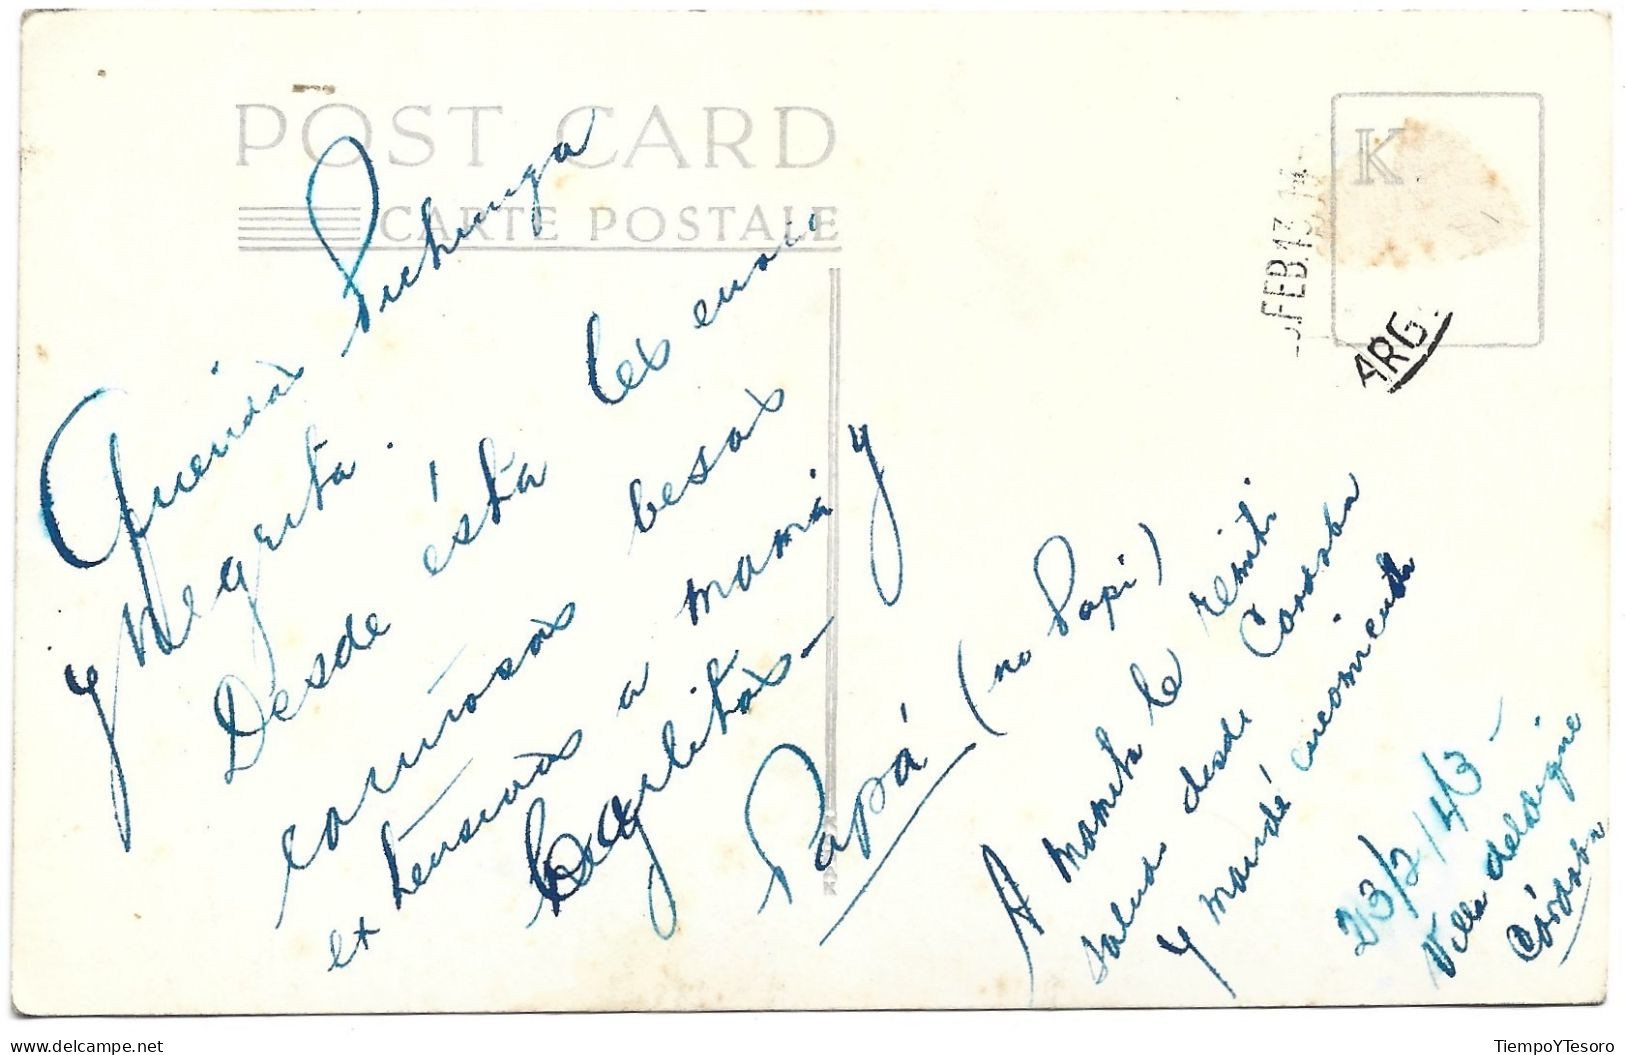 POST CARD
CARTE POSTALE
K
FEB.13
ARG.
Queridas Pichunga
y Negrita.
Desde ésta les envio
cariñosos besos
extensivos a mamá y
Carlitos-
Papá (no Papi)
A Mamita le remiti
salud. desde Cordoba
y mandé encomienda
23/2/43-
Villa del
Córdoba
KODAK
TiempoYTesoro